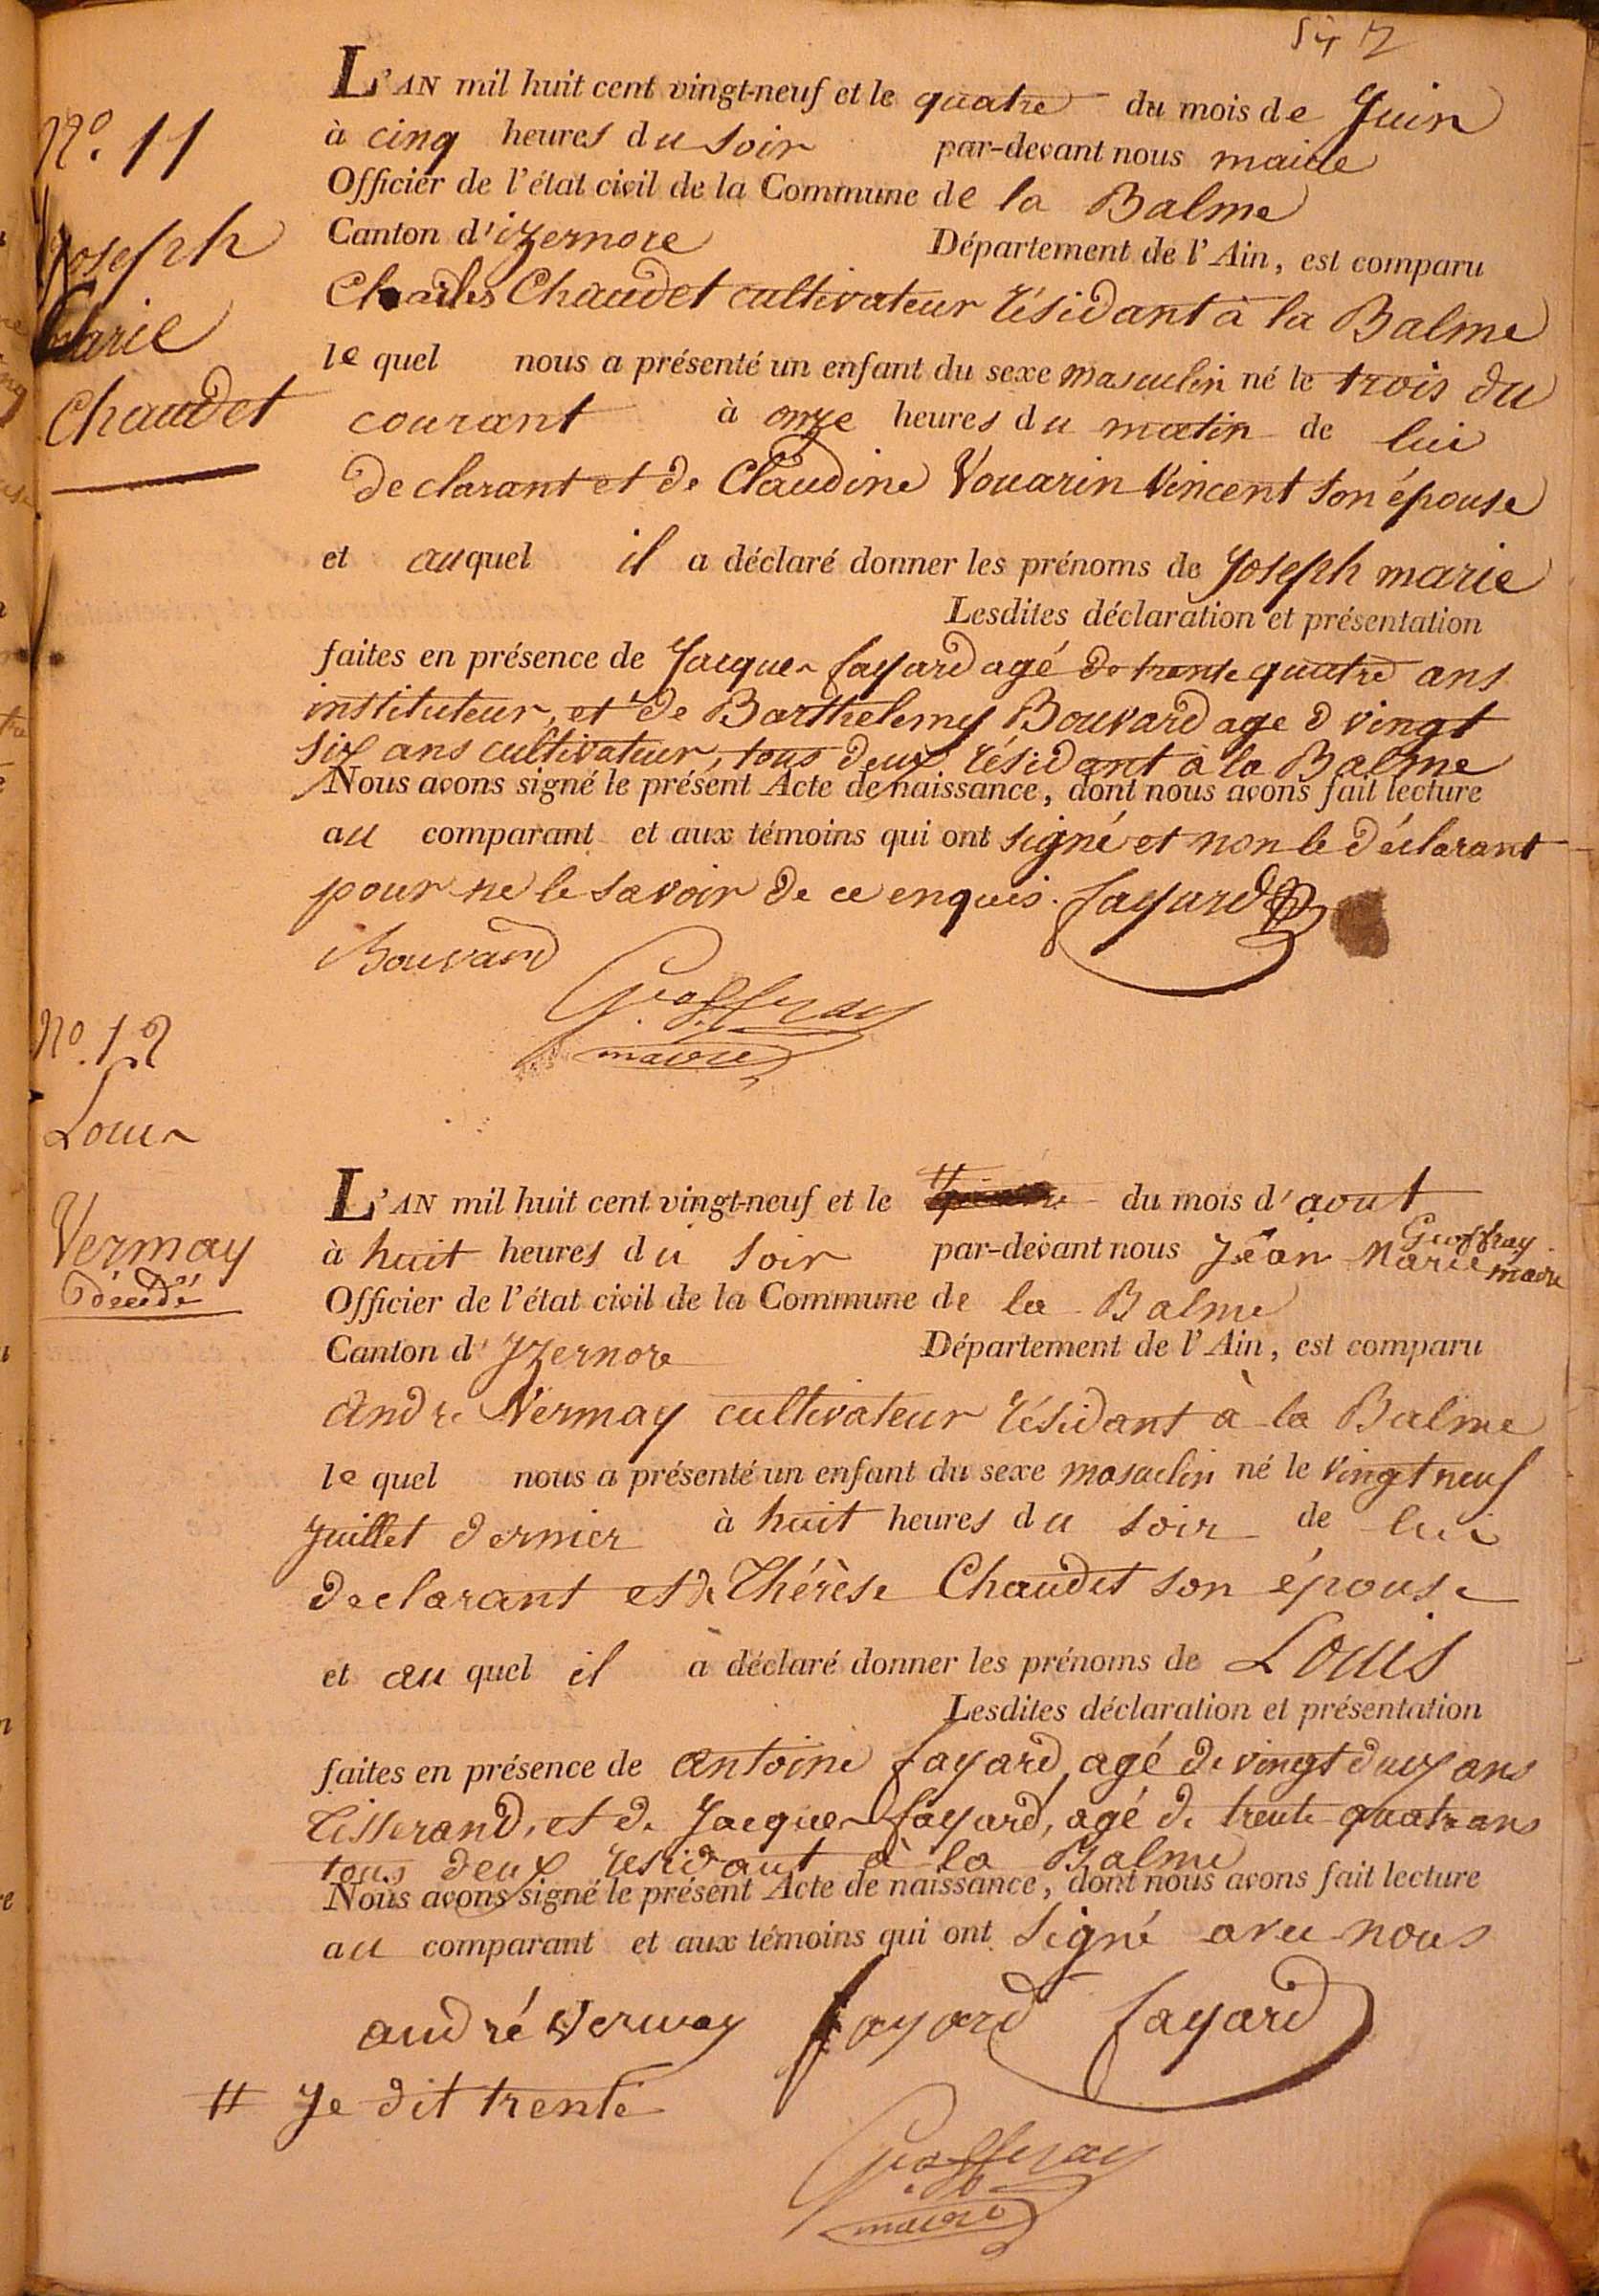 547
N.º 11
Joseph
Marie
Chaudet
L'AN mil huit cent vingt-neuf et le quatre du mois de Juin
à cinq heures du soir par-devant nous maire
Officier de l'état civil de la Commune de la Balme
Canton d'izernore Département de l'Ain, est comparu
Charles Chaudet cultivateur résidant à la Balme
le quel nous a présenté un enfant du sexe masculin né le trois du
courant à onze heures du matin de lui
declarant et de Claudine Vouarin Vincent son épouse
et auquel il a déclaré donner les prénoms de Joseph marie
Lesdites déclaration et présentation
faites en présence de Jacques fayard agé de trente quatre ans
instituteur, et de Barthelemy Bouvard age d vingt
six ans cultivateur, tous deux résidant à la Balme
Nous avons signé le présent Acte de naissance, dont nous avons fait lecture
au comparant et aux témoins qui ont signé et non le déclarant
pour ne le savoir de ce enquis. fayard
Bouvard
Geoffray
maire
N.º 12
Louis
Vermay
décédé
L'AN mil huit cent vingt-neuf et le # du mois d'aout
à huit heures du soir par-devant nous Jean Marie Geoffray maire
Officier de l'état civil de la Commune de la Balme
Canton d'Yzernore Département de l'Ain, est comparu
andre Vermay cultivateur résidant à la Balme
le quel nous a présenté un enfant du sexe masculin né le vingt neuf
Juillet dernier à huit heures du soir de lui
declarant et de Thérèse Chaudet son épouse
et au quel il a déclaré donner les prénoms de Louis
Lesdites déclaration et présentation
faites en présence de antoine fayard, agé de vingt deux ans
tisserand, et de Jacques fayard, agé de trente quatre ans
tous deux residant à la Balme
Nous avons signé le présent Acte de naissance, dont nous avons fait lecture
au comparant et aux témoins qui ont signé avec nous
andré Vermay fayard fayard
# Je dit trente
Geoffray
maire